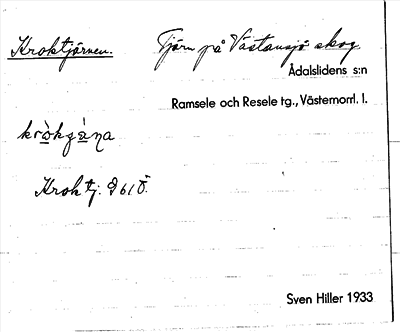 Kroktjärnen.
Tjärn på Västansjö skog
Ådalslidens s:n
Ramsele och Resele tg., Västernorrl. l.
Kroktj. 961Ö.
Sven Hiller 1933